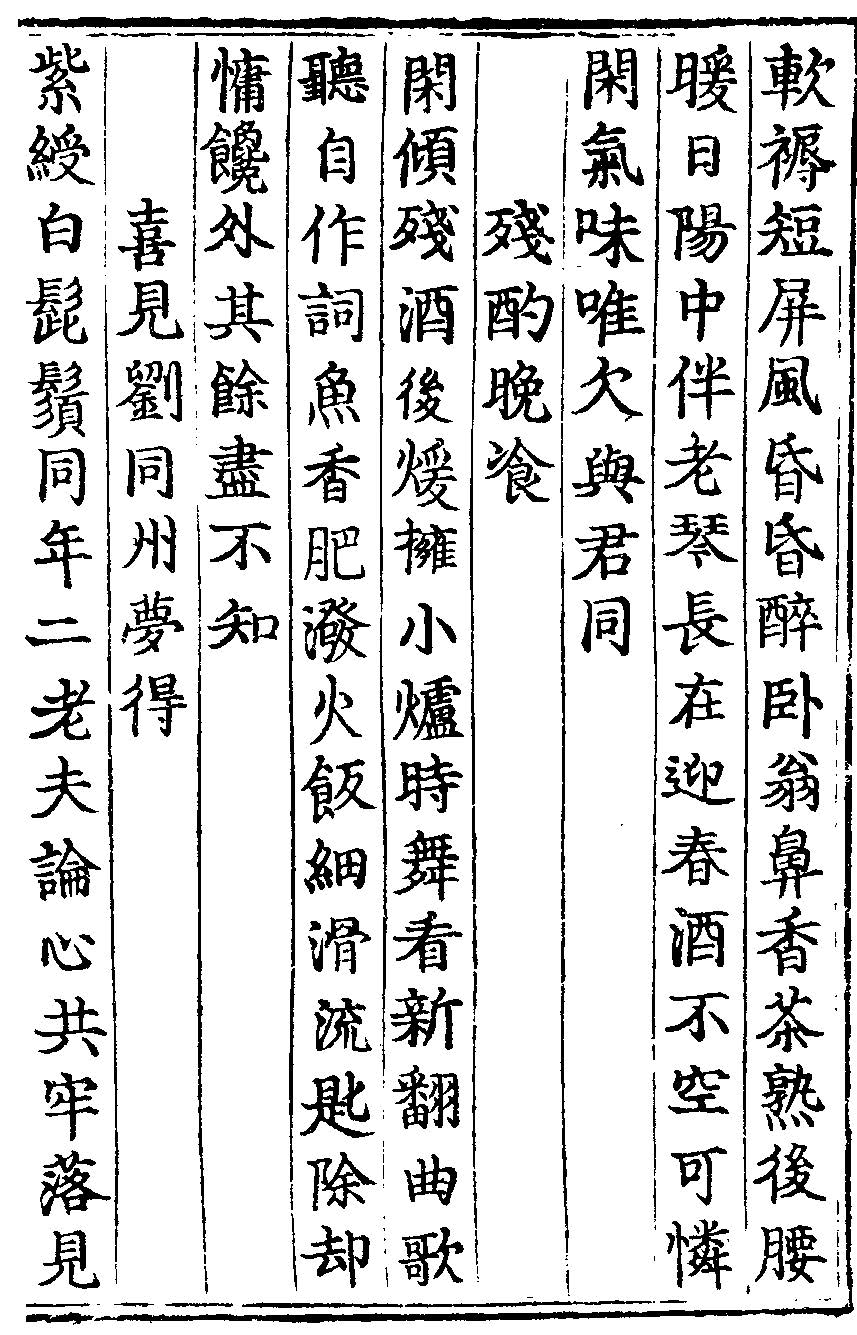 軟褥短屏風昏昏醉卧翁鼻香茶熟後腰
暖日陽中伴老琴長在迎春酒不空可憐
閑氣味唯欠與君同
殘酌晚飡
閑傾殘酒後煖擁小爐時舞看新翻曲歌
聽自作詞魚香肥潑火飯細滑流匙除却
慵饞外其餘盡不知
喜見劉同州夢得
紫綬白髭鬚同年二老夫論心共牢落見